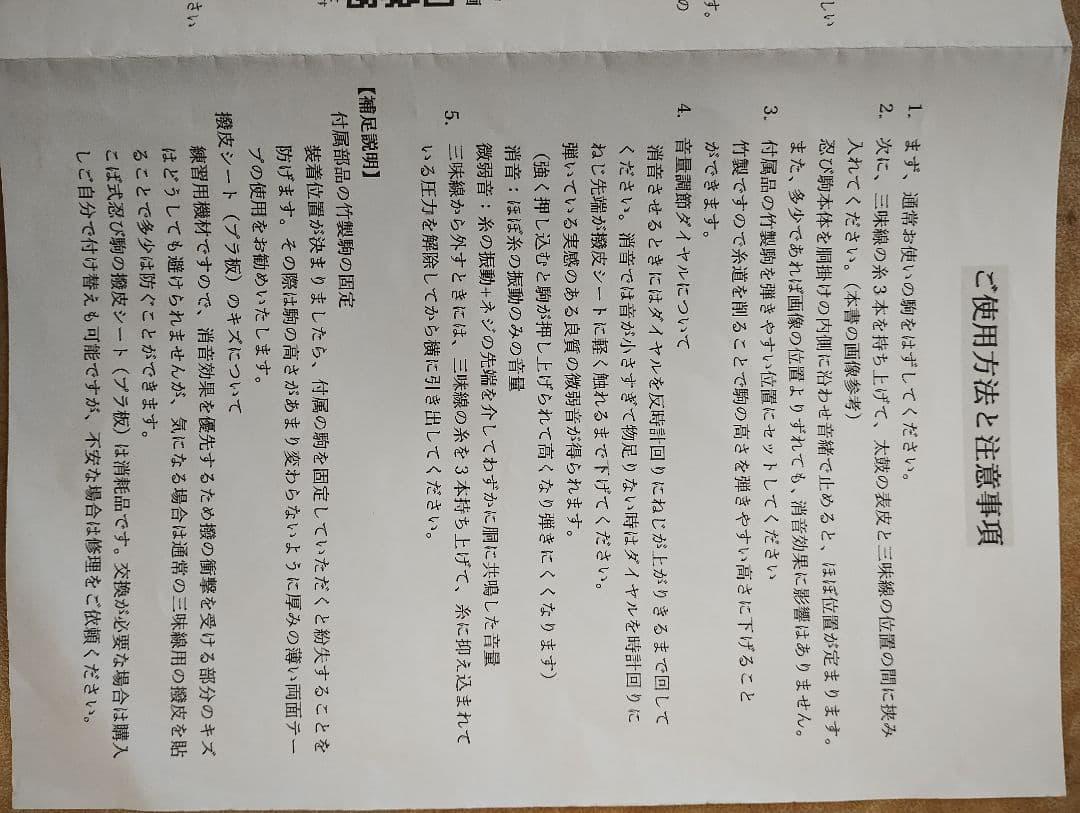 ご使用方法と注意事項
1. まず、通常お使いの駒をはずしてください。
2. 次に、三味線の糸3本を持ち上げて、太鼓の表皮と三味線の位置の間に挟み
入れてください。(本書の画像参考)
忍び駒本体を胴掛けの内側に沿わせ音緒で止めると、ほぼ位置が定まります。
また、多少であれば画像の位置よりずれても、消音効果に影響はありません。
3. 付属品の竹製駒を弾きやすい位置にセットしてください
竹製ですので糸道を削ることで駒の高さを弾きやすい高さに下げること
ができます。
4. 音量調節ダイヤルについて
消音させるときにはダイヤルを反時計回りにねじが上がりきるまで回して
ください。消音では音が小さすぎて物足りない時はダイヤルを時計回りに
ねじ先端が撥皮シートに軽く触れるまで下げてください。
弾いている実感のある良質の微弱音が得られます。
(強く押し込むと駒が押し上げられて高くなり弾きにくくなります)
消音:ほぼ糸の振動のみの音量
微弱音:糸の振動+ネジの先端を介してわずかに胴に共鳴した音量
5. 三味線から外すときには、三味線の糸を3本持ち上げて、糸に抑え込まれて
いる圧力を解除してから横に引き出してください。
【補足説明】
付属部品の竹製駒の固定
装着位置が決まりましたら、付属の駒を固定していただくと紛失することを
防げます。その際は駒の高さがあまり変わらないように厚みの薄い両面テー
プの使用をお勧めいたします。
撥皮シート(プラ板)のキズについて
練習用機材ですので、消音効果を優先するため撥の衝撃を受ける部分のキズ
はどうしても避けられませんが、気になる場合は通常の三味線用の撥皮を貼
ることで多少は防ぐことができます。
こば式忍び駒の撥皮シート(プラ板)は消耗品です。交換が必要な場合は購入
しご自分で付け替えも可能ですが、不安な場合は修理をご依頼ください。
しい
す。
の
さい